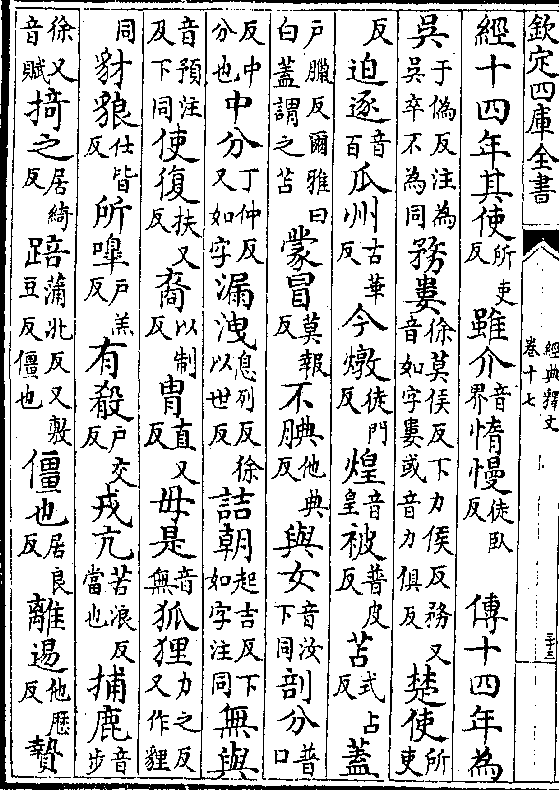 欽定四庫全書
經十四年其使所吏反雖介音界惰慢徒臥反 傳十四年為
吳于偽反注為吳卒不為同務婁徐莫侯反下力侯反務又音如字婁或音力俱反楚使所吏
反迫逐音百瓜州古華反今燉徒門反煌音皇被普皮反苫式占反蓋
戶臘反爾雅曰白蓋謂之苫蒙冒莫報反不腆他典反與女音汝下同剖分普口
反中分也中分丁仲反又如字漏洩息列反徐以世反詰朝起吉反下如字注同無與
音預注及下同使復扶又反裔以制反冑直又反毋是音無狐狸力之反又作貍
同豺狼仕皆反所嘷戶羔反有殽戶交反戎亢苦浪反當也捕鹿音步
徐又音賦掎之居綺反踣蒲北反又敷豆反僵也僵也居良反離逷他歷反贄
經典釋文
卷十七
三十三